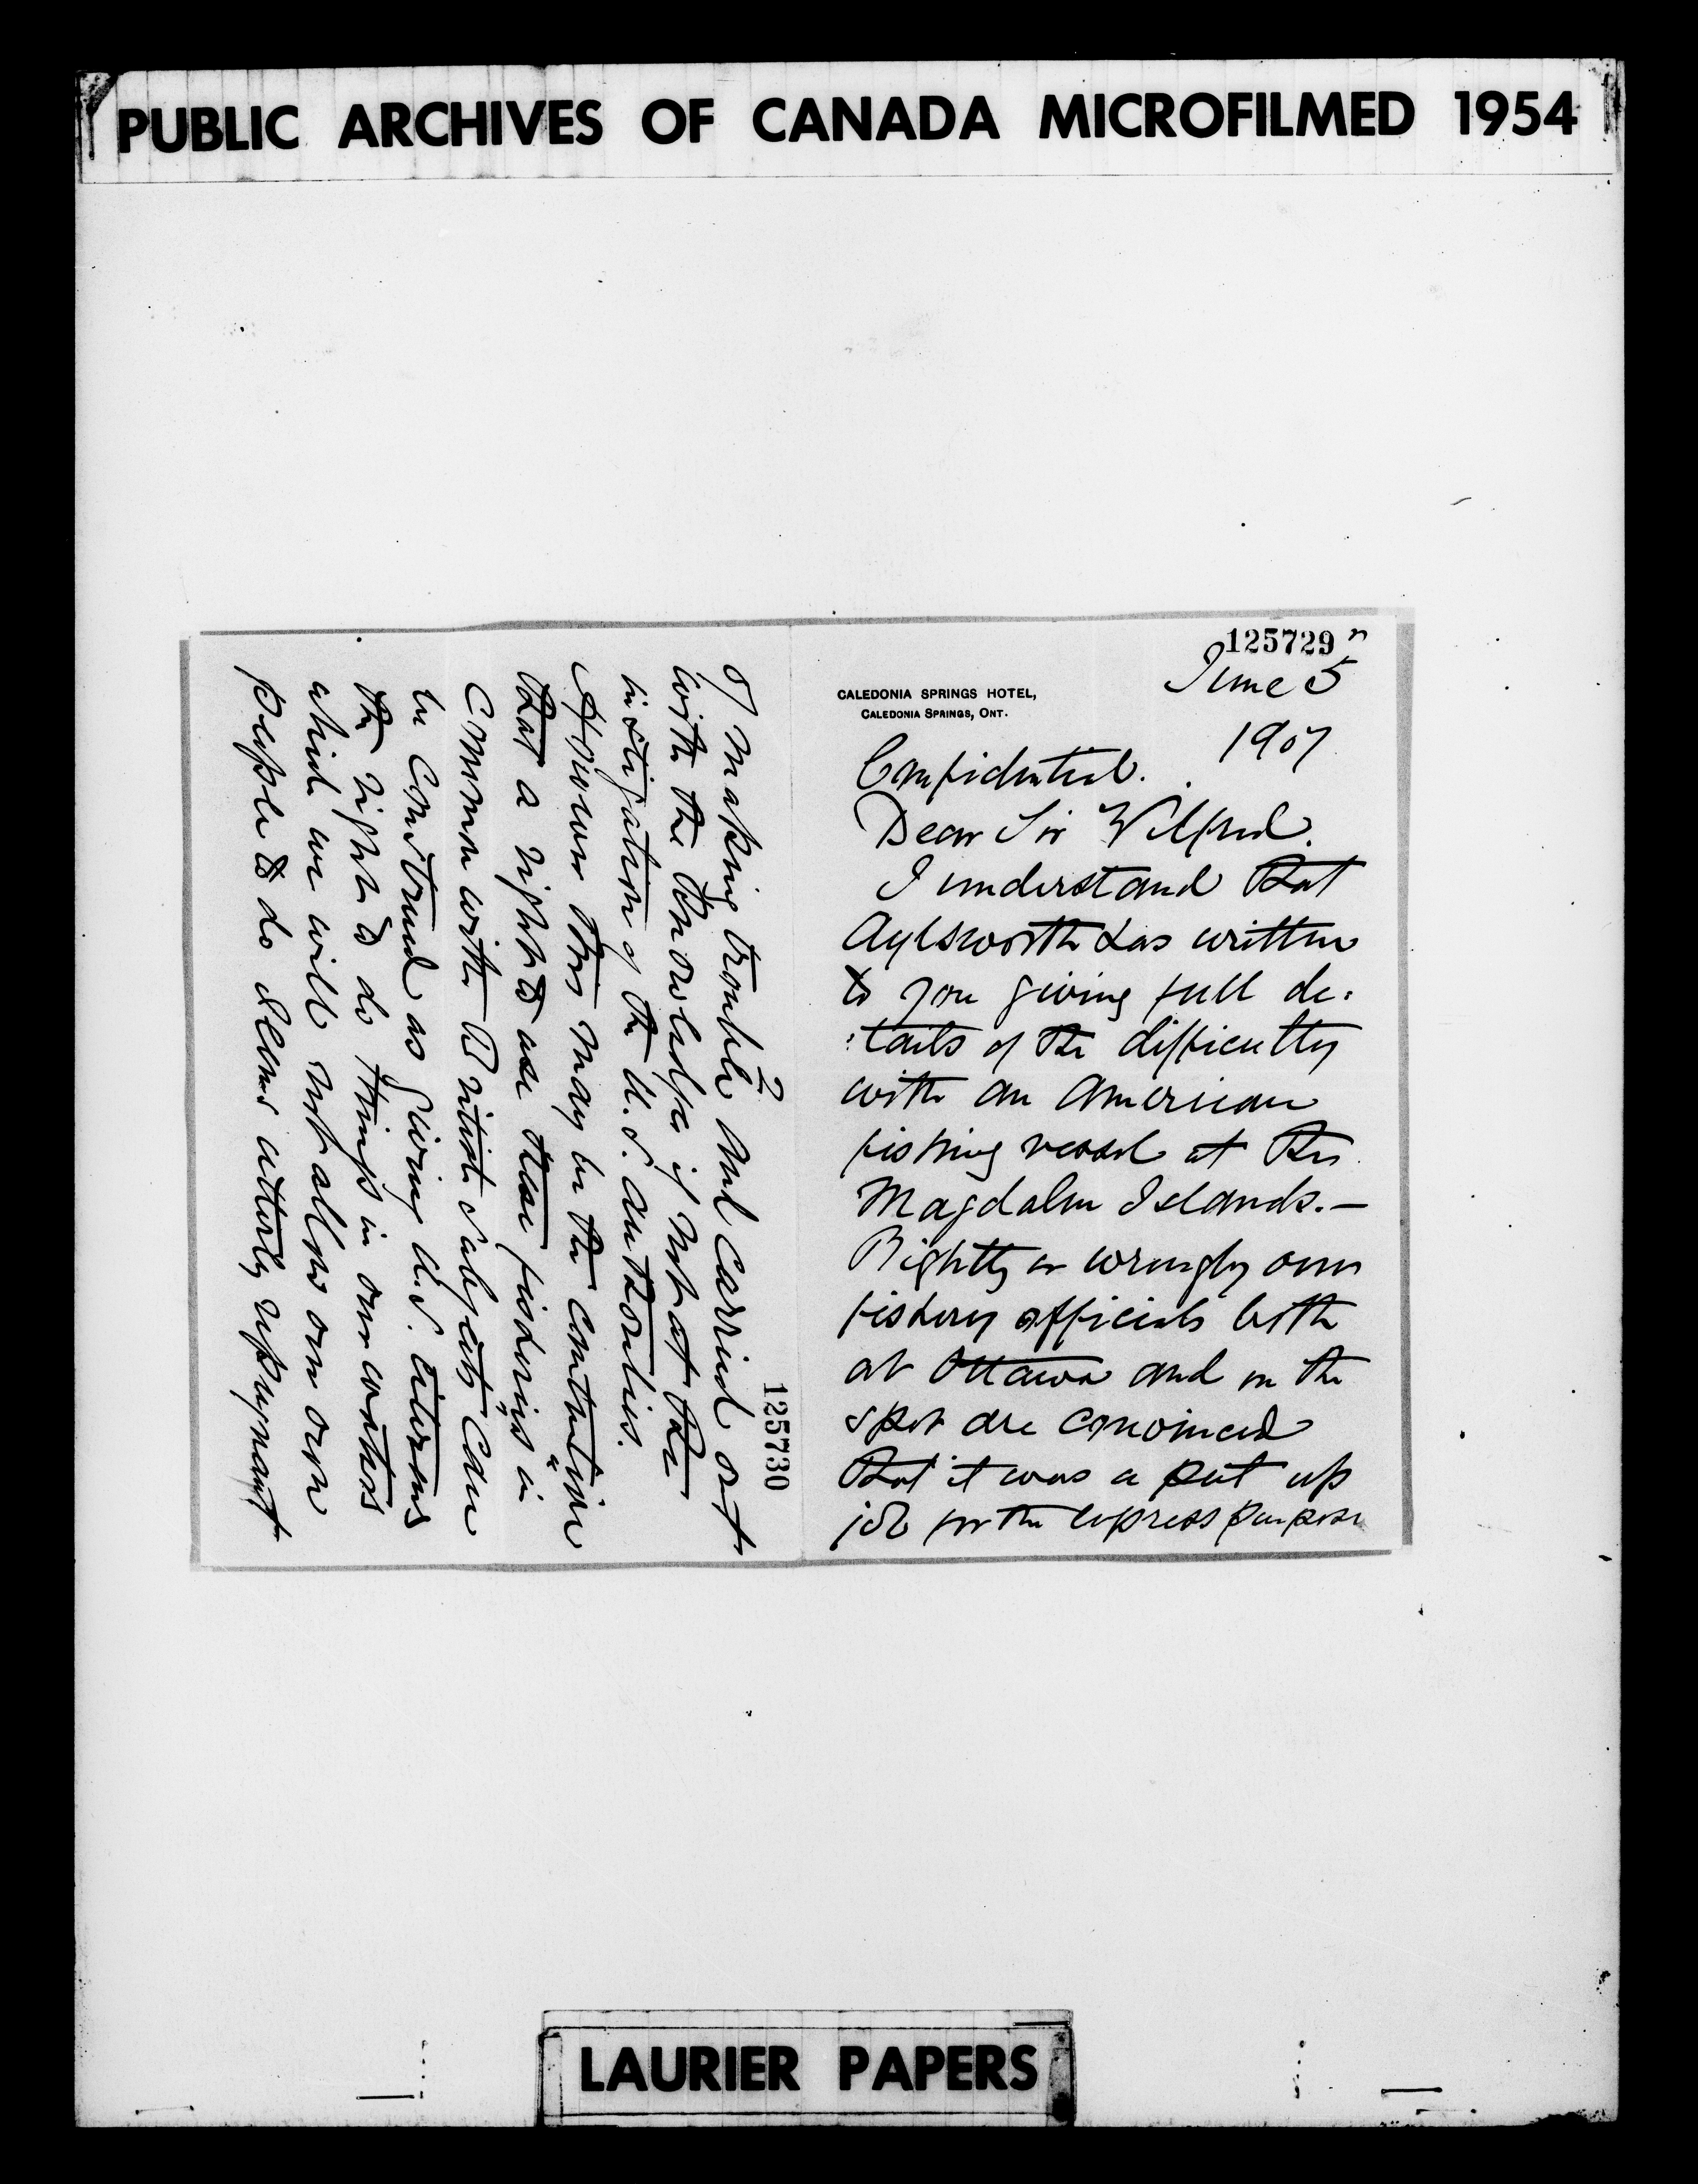 PUBLIC ARCHIVES OF CANADA MICROFILMED 1954
125729
June 5
CALEDONIA SPRINGS HOTEL,
CALEDONIA SPRINGS, ONT.
1907
Confidential.
Dear Sir Wilfred.
I understand that
Aylsworth has written
to you giving full de:
:tails of the difficulty
with an American
fishing vessel at the
Magdalen Islands.—
Rightly or wrongly our
fishery officials both
at Ottawa and on the
spot are convinced
that it was a put up
job for the express purpose
125730
2
of making trouble and carried out
with the knowledge if not at the
instigation of the U.S. authorities.
However this may be the contention
that a right to use these fisheries "in
common with" British subjects can
be construed as giving U.S. citizens
the right to do things in our waters
which we will not allow our own
people to do seems utterly repugnant
LAURIER PAPERS